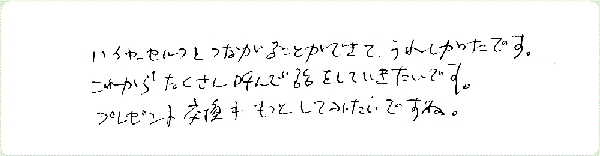 ハイヤーセルフとつながることができて、うれしかったです。
これから たくさん呼んで 話をしていきたいです。
プレゼント交換も もっと してみたいですね。